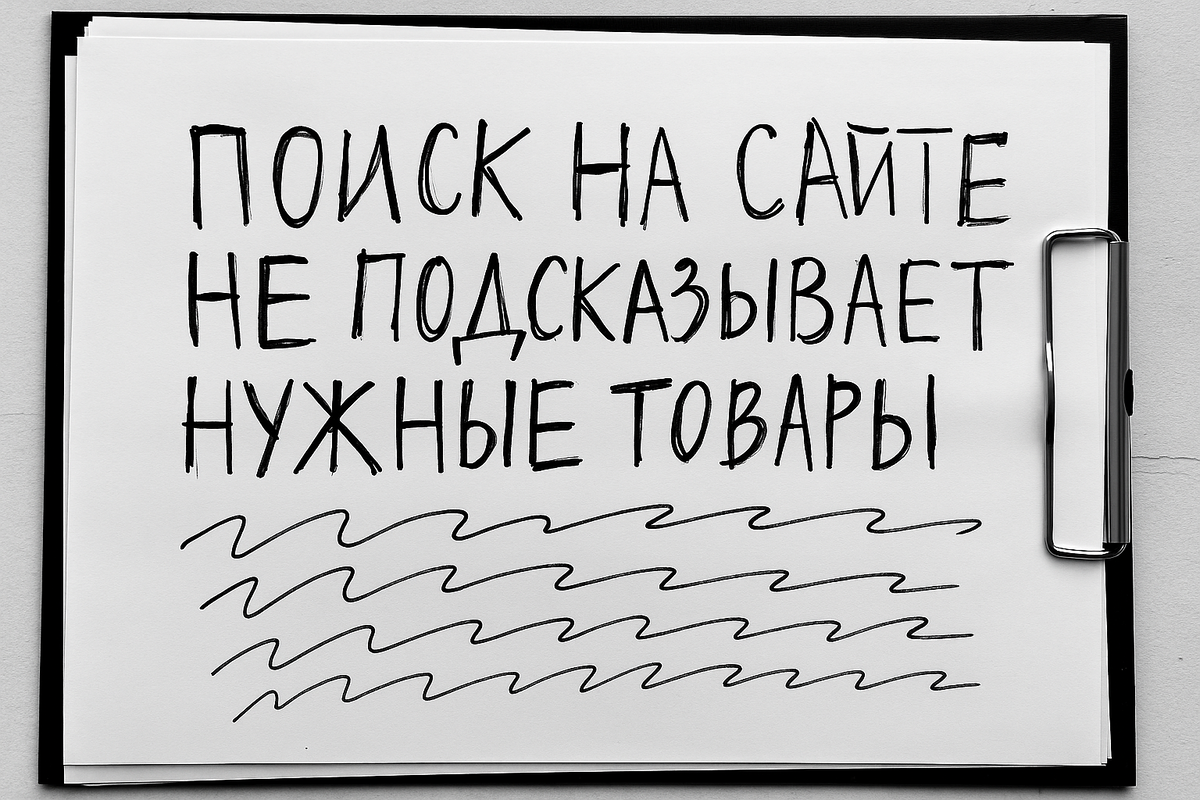 ПОИСК НА САЙТЕ
НЕ ПОДСКАЗЫВАЕТ
НУЖНЫЕ ТОВАРЫ